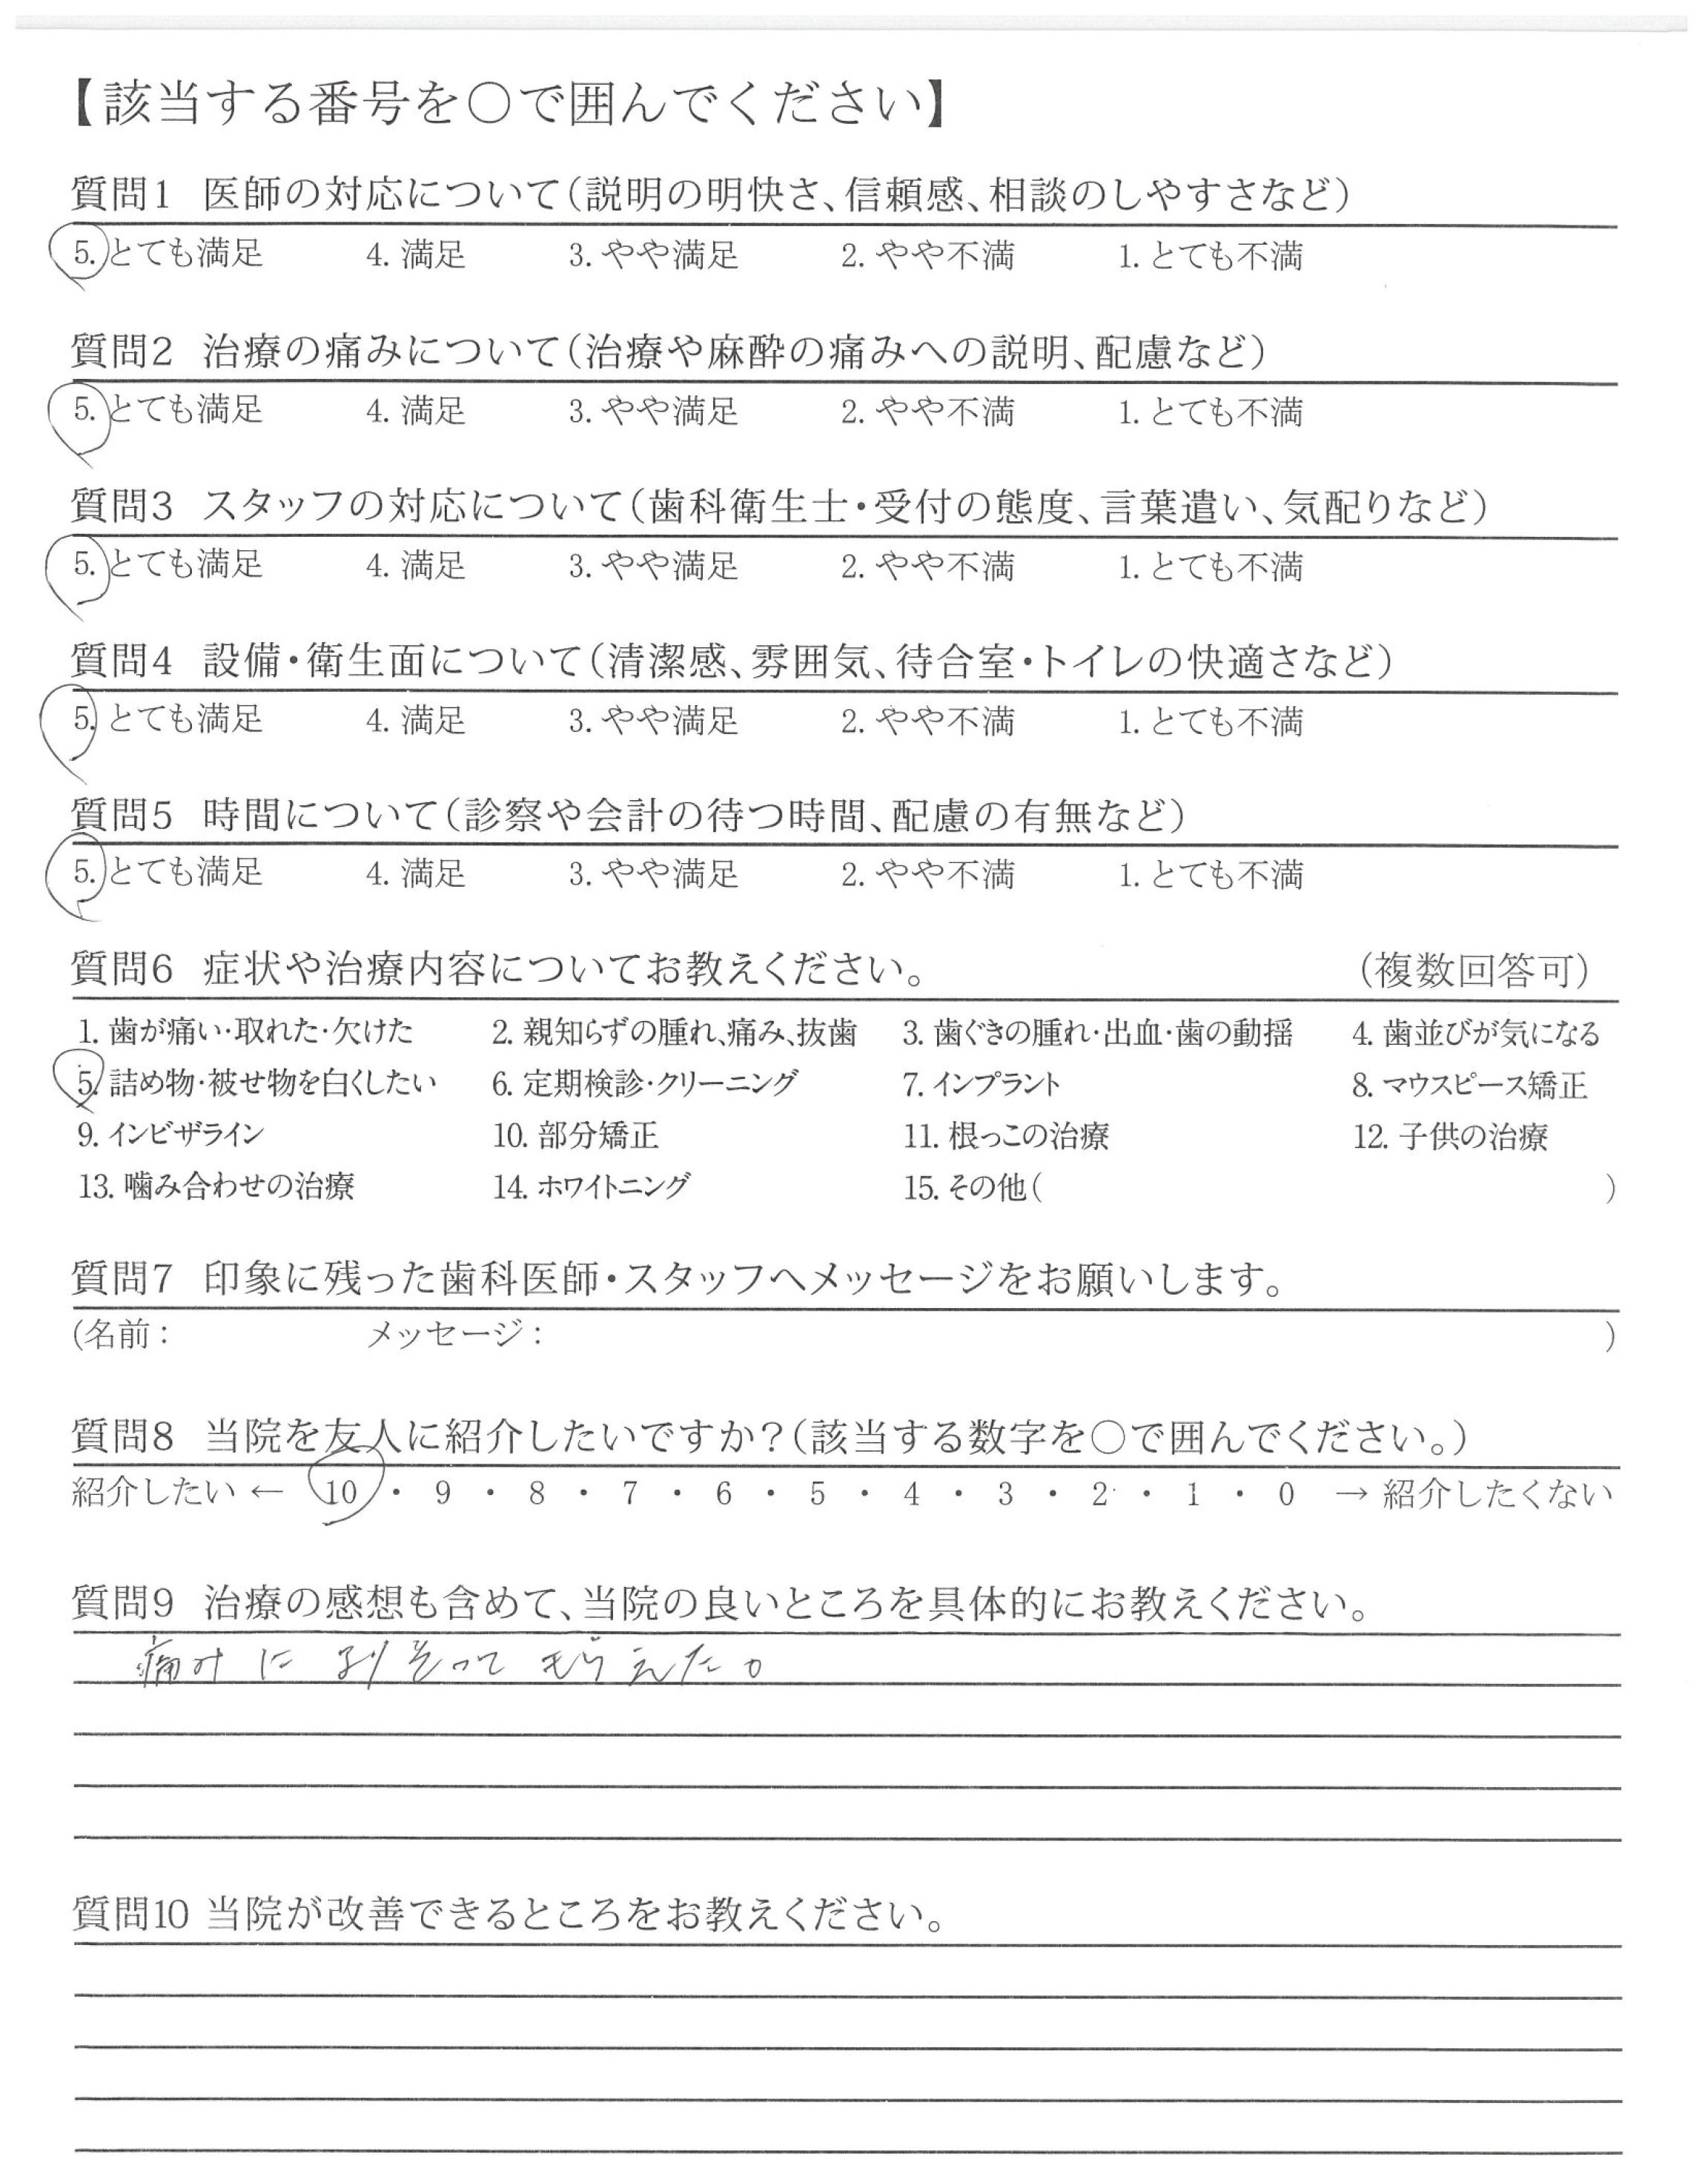 【該当する番号を○で囲んでください】
質問1 医師の対応について(説明の明快さ、信頼感、相談のしやすさなど)
5. とても満足 4. 満足 3. やや満足 2. やや不満 1. とても不満
質問2 治療の痛みについて(治療や麻酔の痛みへの説明、配慮など)
5. とても満足 4. 満足 3. やや満足 2. やや不満 1. とても不満
質問3 スタッフの対応について(歯科衛生士・受付の態度、言葉遣い、気配りなど)
5. とても満足 4. 満足 3. やや満足 2. やや不満 1. とても不満
質問4 設備・衛生面について(清潔感、雰囲気、待合室・トイレの快適さなど)
5. とても満足 4. 満足 3. やや満足 2. やや不満 1. とても不満
質問5 時間について(診察や会計の待つ時間、配慮の有無など)
5. とても満足 4. 満足 3. やや満足 2. やや不満 1. とても不満
質問6 症状や治療内容についてお教えください。 (複数回答可)
1. 歯が痛い・取れた・欠けた 2. 親知らずの腫れ、痛み、抜歯 3. 歯ぐきの腫れ・出血・歯の動揺 4. 歯並びが気になる
5. 詰め物・被せ物を白くしたい 6. 定期検診・クリーニング 7. インプラント 8. マウスピース矯正
9. インビザライン 10. 部分矯正 11. 根っこの治療 12. 子供の治療
13. 噛み合わせの治療 14. ホワイトニング 15. その他( )
質問7 印象に残った歯科医師・スタッフへメッセージをお願いします。
(名前: メッセージ: )
質問8 当院を友人に紹介したいですか?(該当する数字を○で囲んでください。)
紹介したい ← 10 ・ 9 ・ 8 ・ 7 ・ 6 ・ 5 ・ 4 ・ 3 ・ 2 ・ 1 ・ 0 → 紹介したくない
質問9 治療の感想も含めて、当院の良いところを具体的にお教えください。
痛みに よりそって もらえた。
質問10 当院が改善できるところをお教えください。